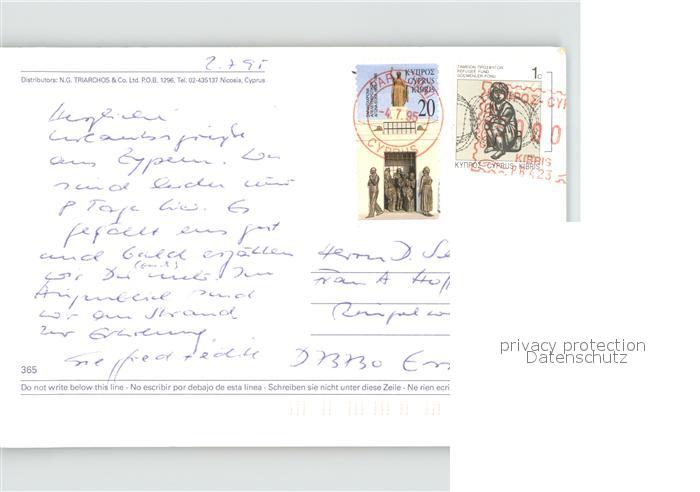 2.7.95
Distributors: N.G. TRIARCHOS & Co. Ltd. P.O.B. 1296, Tel. 02-435137 Nicosia, Cyprus
Herzliche
Urlaubsgrüße
aus Zypern. Wir
sind leider nur
8 Tage hier. Es
gefällt uns gut
und bald erzählen
wir Dir (Euch) mehr. Im
Augenblick sind
wir am Strand
zur Erholung.
Siegfried
ΚΥΠΡΟΣ
CYPRUS
KIBRIS
20
-4.7.95
CYPRUS
ΤΑΜΕΙΟΝ ΠΡΟΣΦΥΓΩΝ
REFUGEE FUND
GÖÇMENLER FONU
1c
ΚΥΠΡΟΣ-CYPRUS-KIBRIS
KIBRIS
Herrn D.
Frau A
365
Do not write below this line - No escribir por debajo de esta linea - Schreiben sie nicht unter diese Zeile - Ne rien ecri
privacy protection
Datenschutz